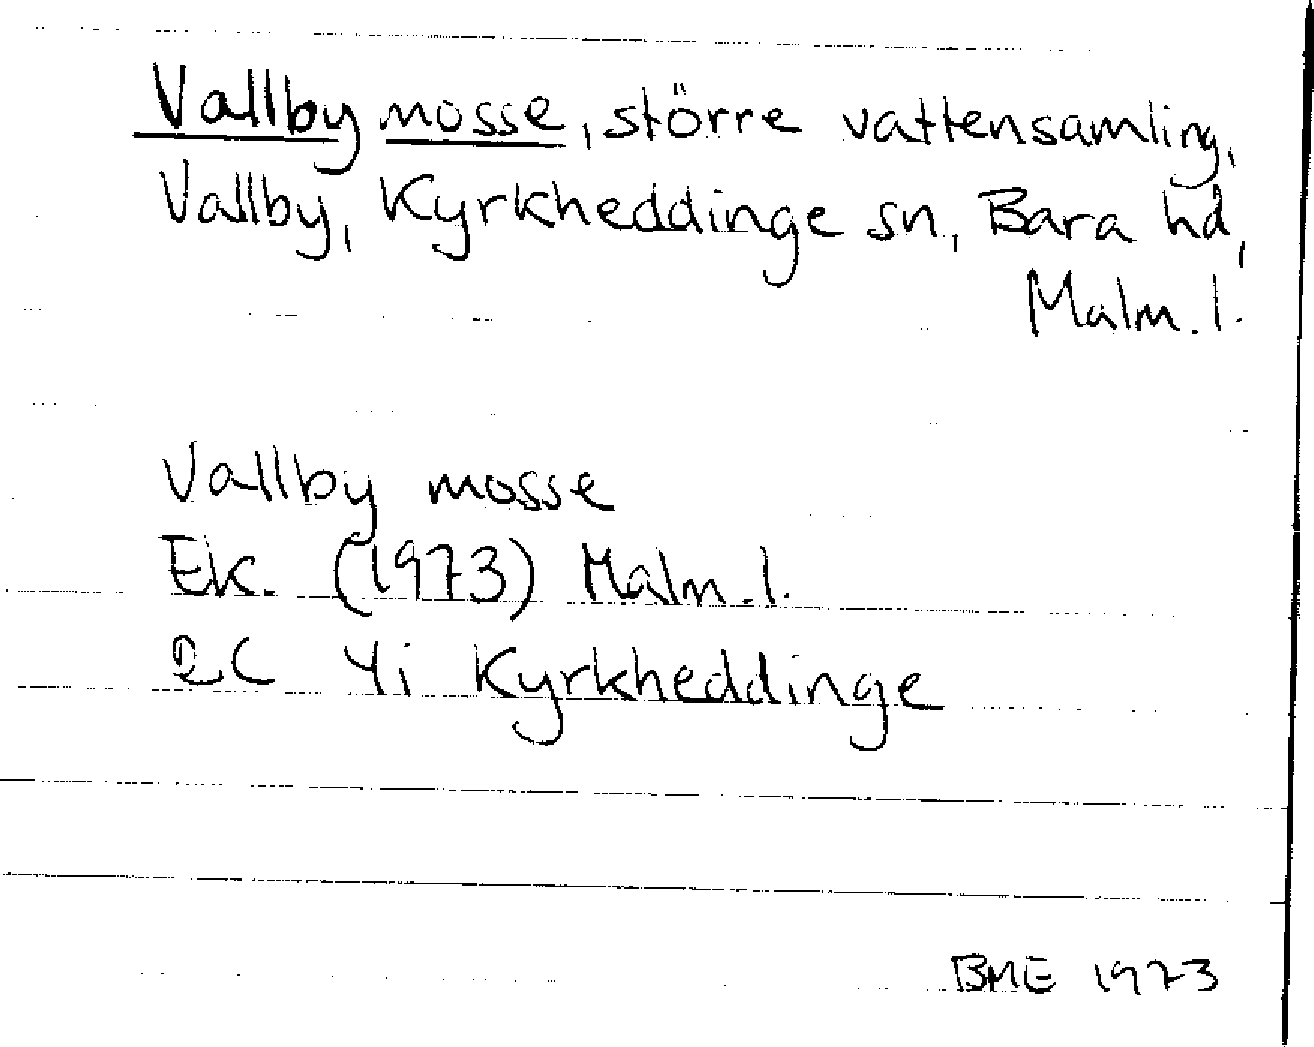 Vallby mosse, större vattensamling,
Vallby, Kyrkheddinge sn, Bara hd,
Malm. l.
Vallby mosse
Ek. (1973) Malm. l.
2C 4i Kyrkheddinge
BME 1973